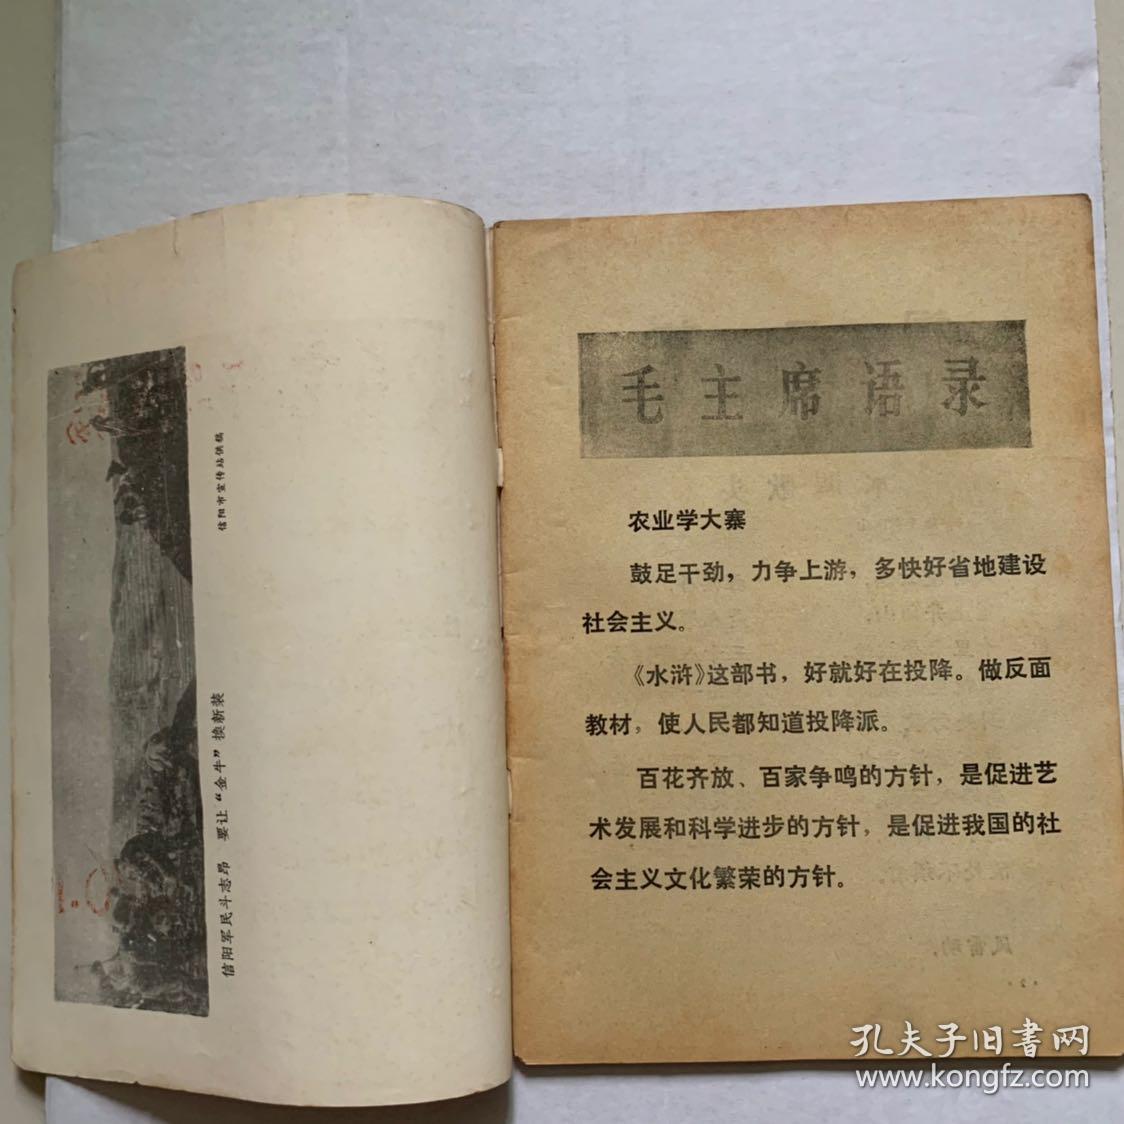 信阳军民斗志昂 要让“金牛”换新装
信阳市宣传站供稿
毛主席语录
农业学大寨
鼓足干劲，力争上游，多快好省地建设
社会主义。
《水浒》这部书，好就好在投降。做反面
教材，使人民都知道投降派。
百花齐放、百家争鸣的方针，是促进艺
术发展和科学进步的方针，是促进我国的社
会主义文化繁荣的方针。
孔夫子旧书网
www.kongfz.com